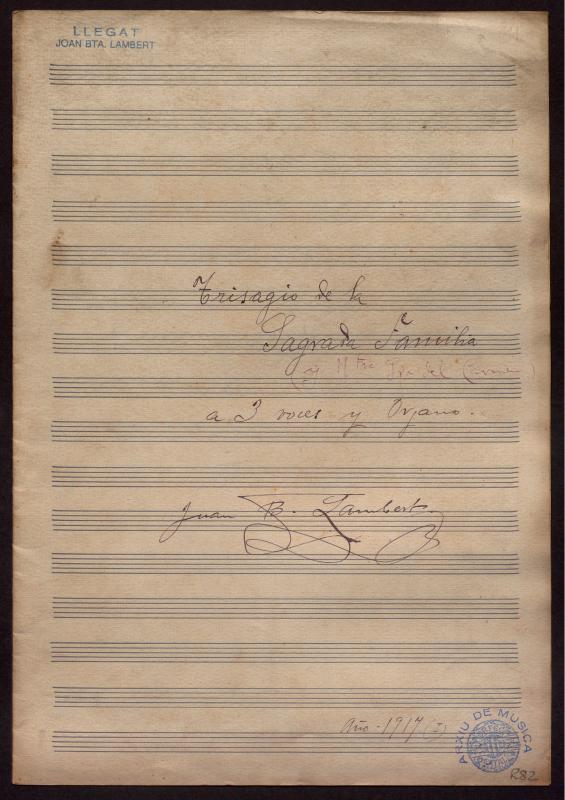 LLEGAT
JOAN BTA. LAMBERT
Trisagio de la
Sagrada Familia
(y Ntra Sra del Carmen)
a 3 voces y Organo.
Juan B. Lambert
Año - 1917 (?)
ARXIU DE MUSICA
R82